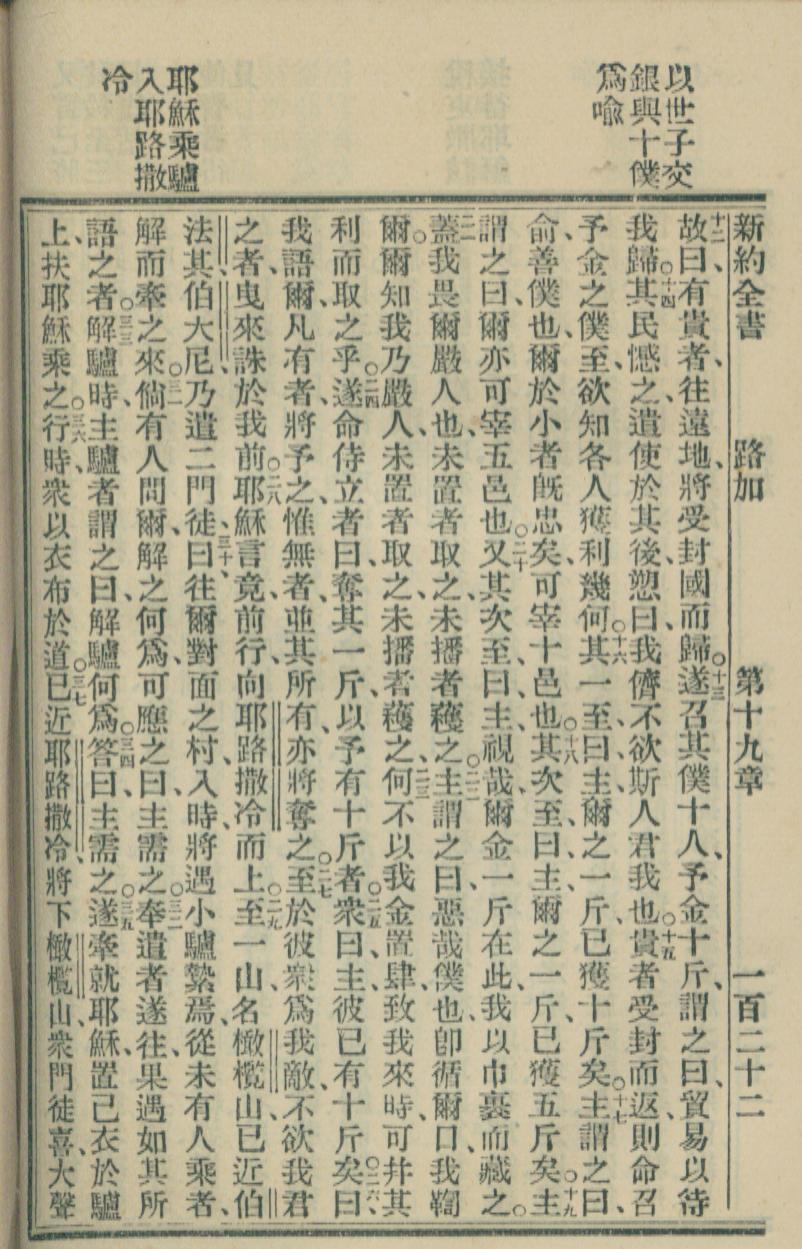 以世子交
銀與十僕
爲喩
耶穌乘驢
入耶路撒
冷
新約全書 路加 第十九章 一百二十二
十二故曰、有貴者、往遠地、將受封國而歸、○十三遂召其僕十人、予金十斤、謂之曰、貿易以待
我歸、○十四其民憾之、遣使於其後、愬曰、我儕不欲斯人君我也、○十五貴者受封而返、則命召
予金之僕至、欲知各人獲利幾何、○十六其一至曰、主、爾之一斤、已獲十斤矣、○十七主謂之曰、
俞、善僕也、爾於小者旣忠矣、可宰十邑也、○十八其次至曰、主、爾之一斤、已獲五斤矣、○十九主
謂之曰、爾亦可宰五邑也、○二十又其次至曰、主、視哉、爾金一斤在此、我以巾裹而藏之、○
二一蓋我畏爾嚴人也、未置者取之、未播者穫之、○二二主謂之曰、惡哉僕也、卽循爾口、我鞫
爾、○爾知我乃嚴人、未置者取之、未播者穫之、二三何不以我金置肆、致我來時、可幷其
利而取之乎、○二四遂命侍立者曰、奪其一斤、以予有十斤者、○二五衆曰、主、彼已有十斤矣、○二六曰、
我語爾、凡有者、將予之、惟無者、並其所有、亦將奪之、○二七至於彼衆、爲我敵、不欲我君
之者、曳來誅於我前、○二八耶穌言竟、前行、向耶路撒冷而上、○二九至一山、名橄欖山、已近伯
法其、伯大尼、乃遣二門徒曰、三十往爾對面之村、入時、將遇小驢縶焉、從未有人乘者、
解而牽之來、○三一倘有人問爾、解之何爲、可應之曰、主需之、○三二奉遣者遂往、果遇如其所
語之者、○三三解驢時、主驢者謂之曰、解驢何爲、○三四答曰、主需之、○三五遂牽就耶穌、置己衣於驢
上、扶耶穌乘之、○三六行時、衆以衣布於道、○三七已近耶路撒冷、將下橄欖山、衆門徒喜、大聲